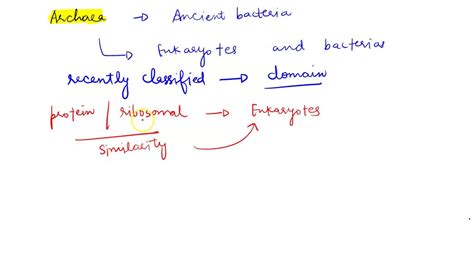 Archaea → Ancient bacteria
Eukaryotes and bacterias
recently classified → domain
protein | ribosomal → Eukaryotes
similarity